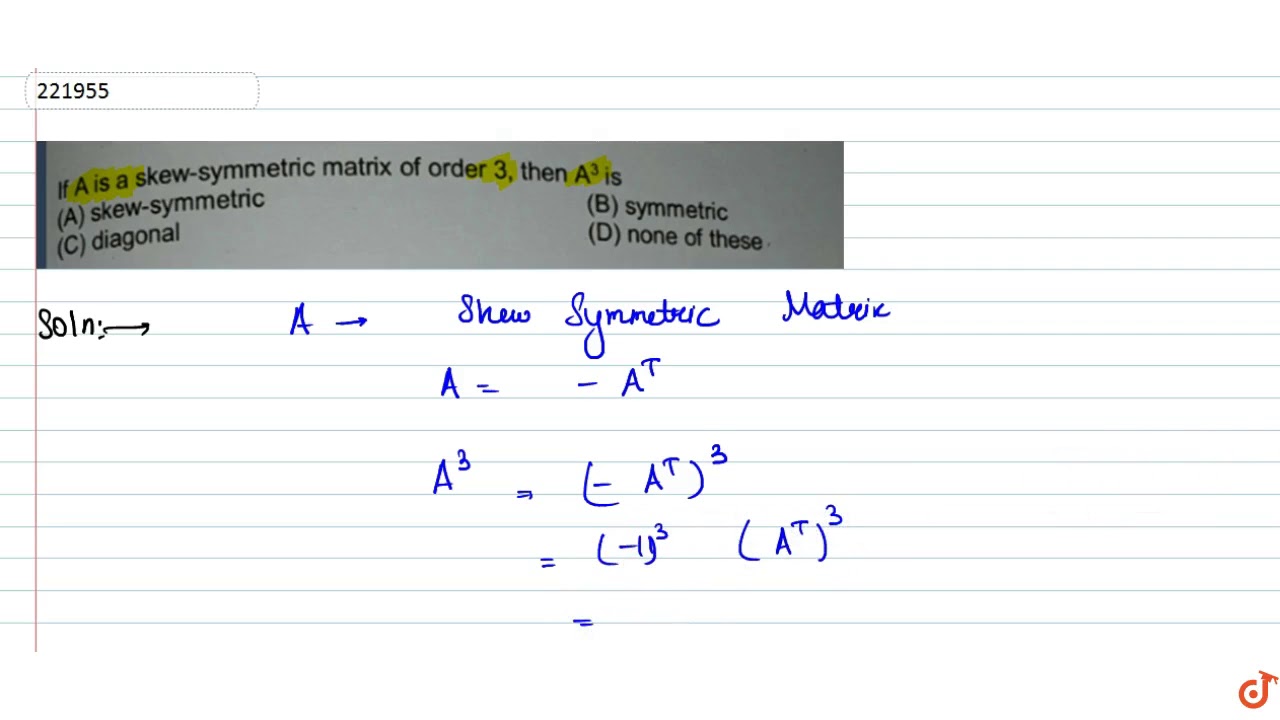 221955
If A is a skew-symmetric matrix of order 3, then A³ is
(A) skew-symmetric (B) symmetric
(C) diagonal (D) none of these
Soln:⟶ A → Skew Symmetric Matrix
A = - Aᵀ
A³ = (- Aᵀ)³
= (-1)³ (Aᵀ)³
=